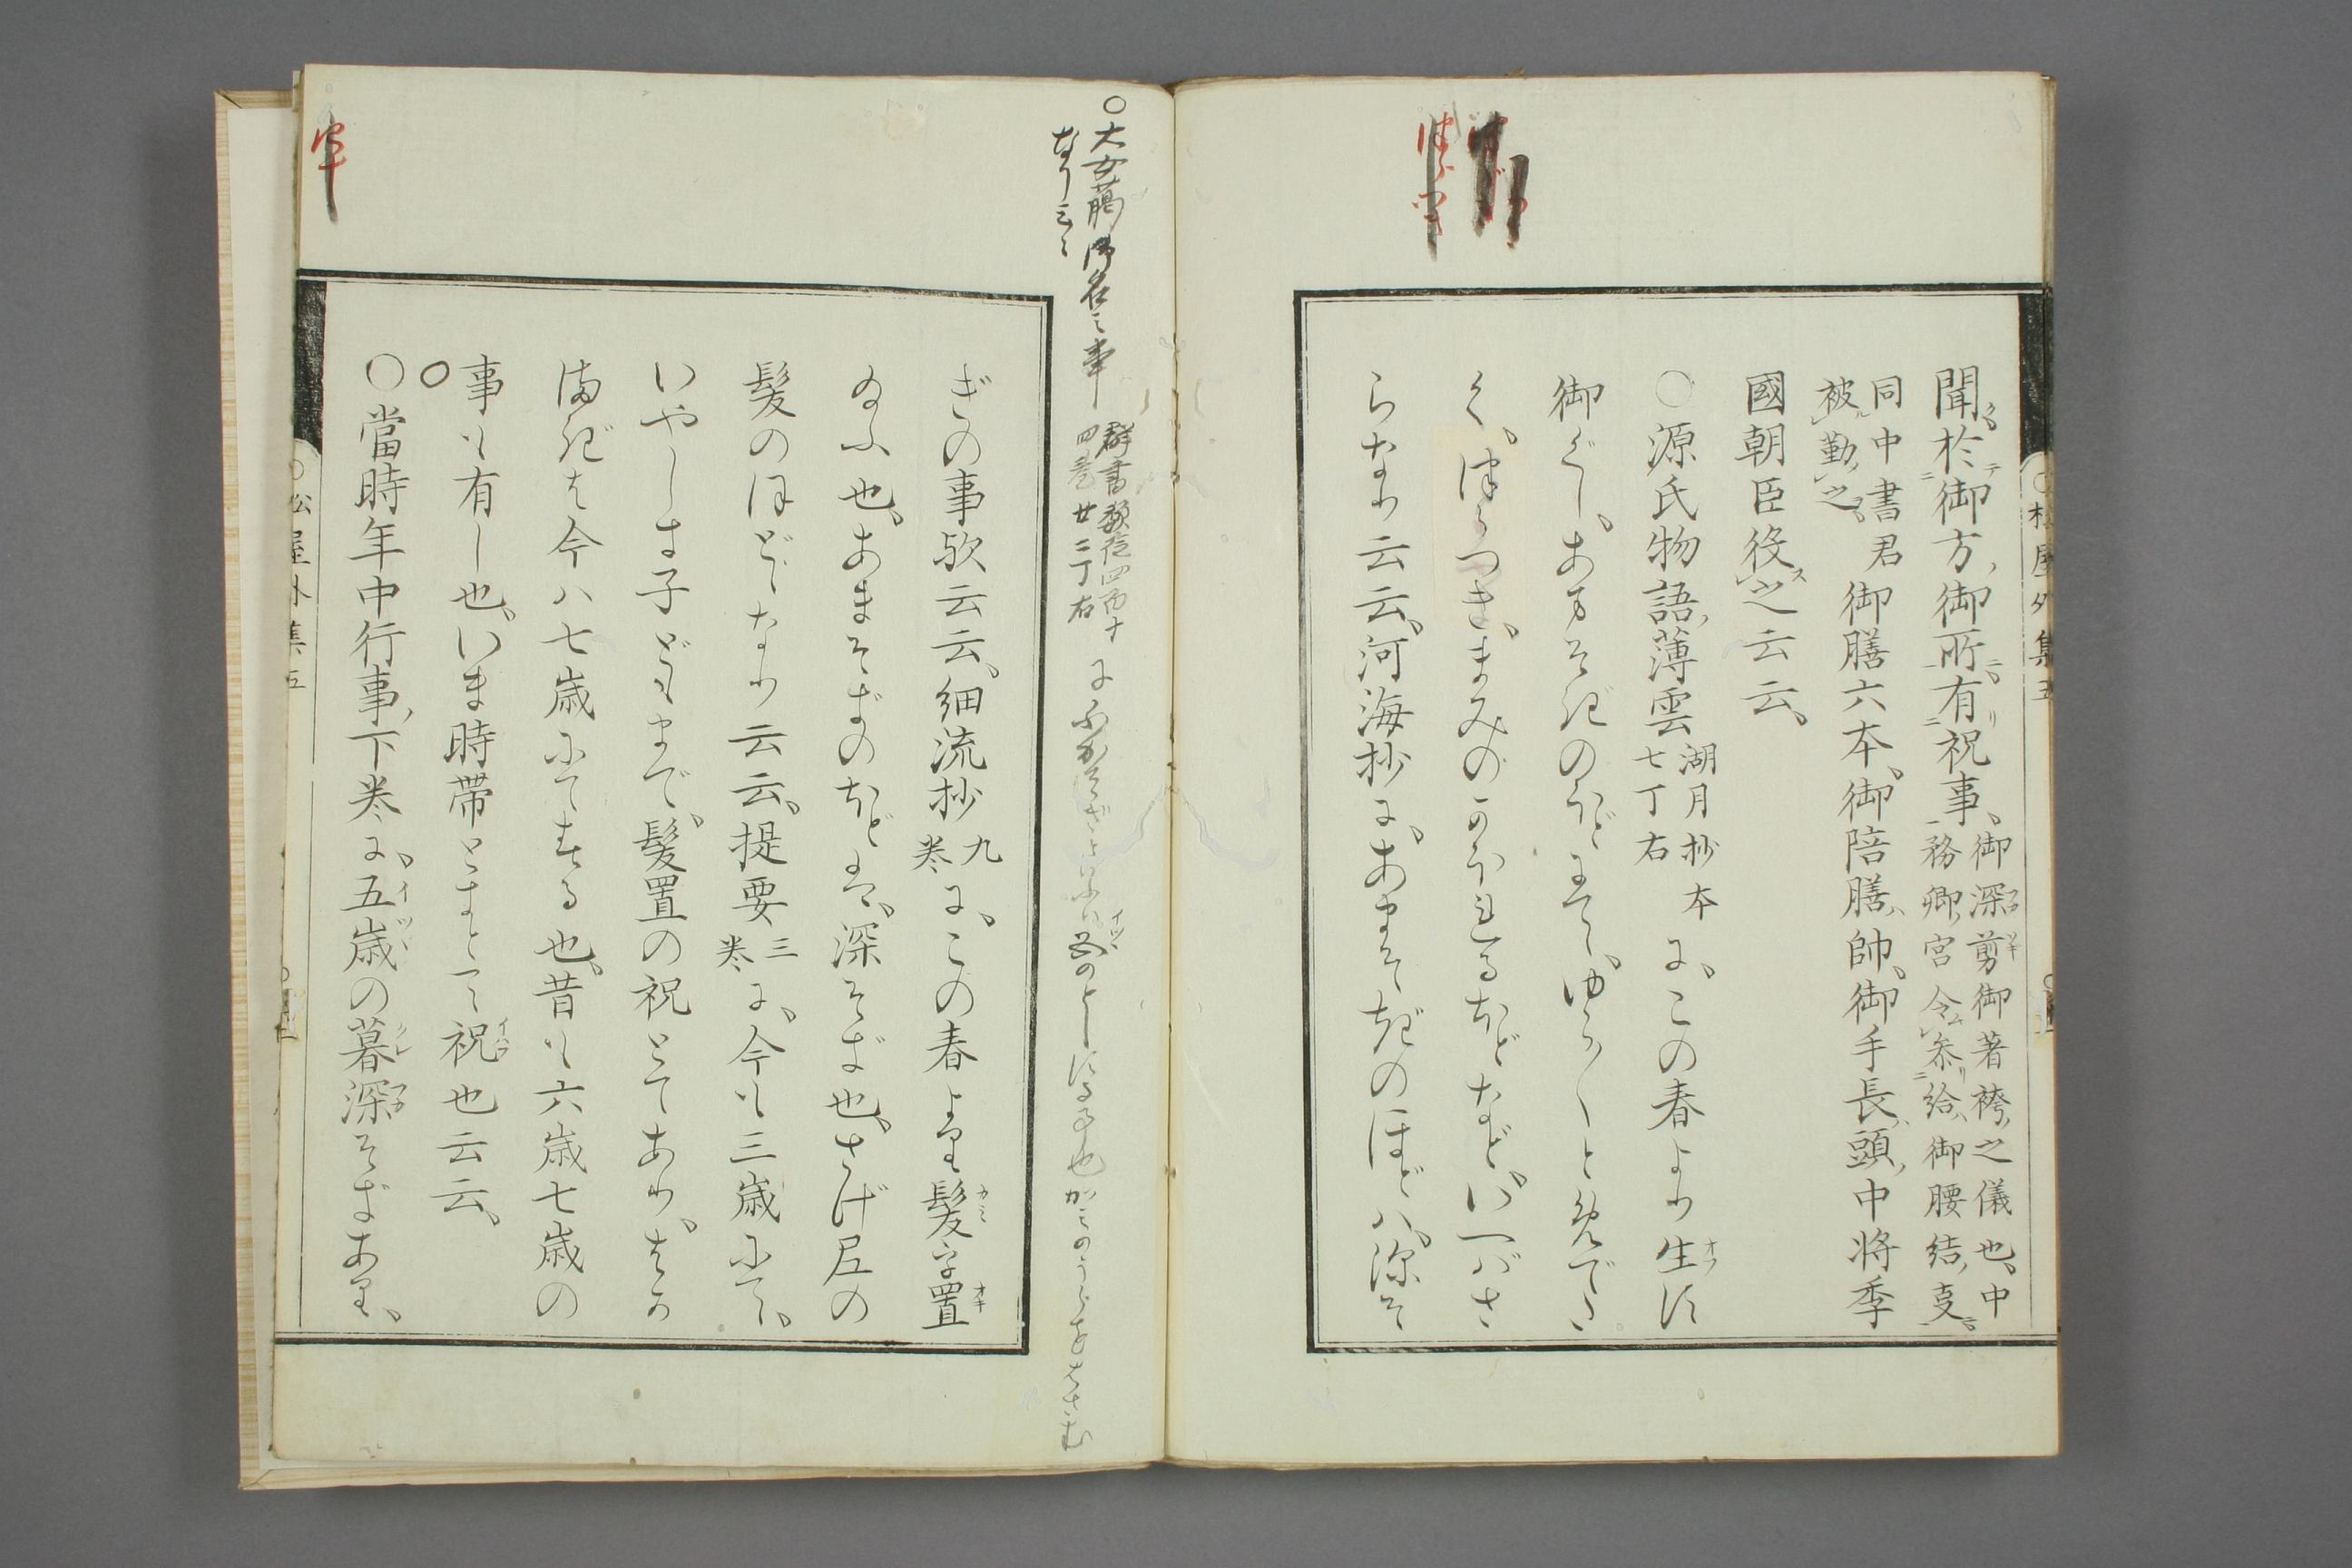 聞於御方御所有祝事、御深剪御著袴之儀也、中
務卿宮令参給、御腰結支
同中書君
被勤之
御膳六本、御陪膳、帥、御手長、頭中将季
國朝臣役之云云、
○源氏物語薄雲湖月抄本
七丁右
に、この春より生す
御ぐし、あまそぎのほどにて、ゆら〱とめでた
く、つらつき、まみのかほれるほどなど、いへばさ
らなり云云、河海抄に、あまそぎのほどハ、深そ
○大女﨟御名之事
群書類従四百十
四巻廿二丁右
に
なり云々
ぎの事歟云云、細流抄九
巻
に、この春より髪を置
給ふ也、あまそぎのほどは、深そぎ也、さげ尼の
髪のほどなり云云、提要三
巻
に、今も三歳にて、
いやしき子どもまで、髪置の祝とてあり、はか
まぎは今ハ七歳にてきる也、昔も六歳七歳の
事も有し也、いま時帯ときとて祝也云云、
○當時年中行事下巻に、五歳の暮深そぎあり、
○松屋外集五